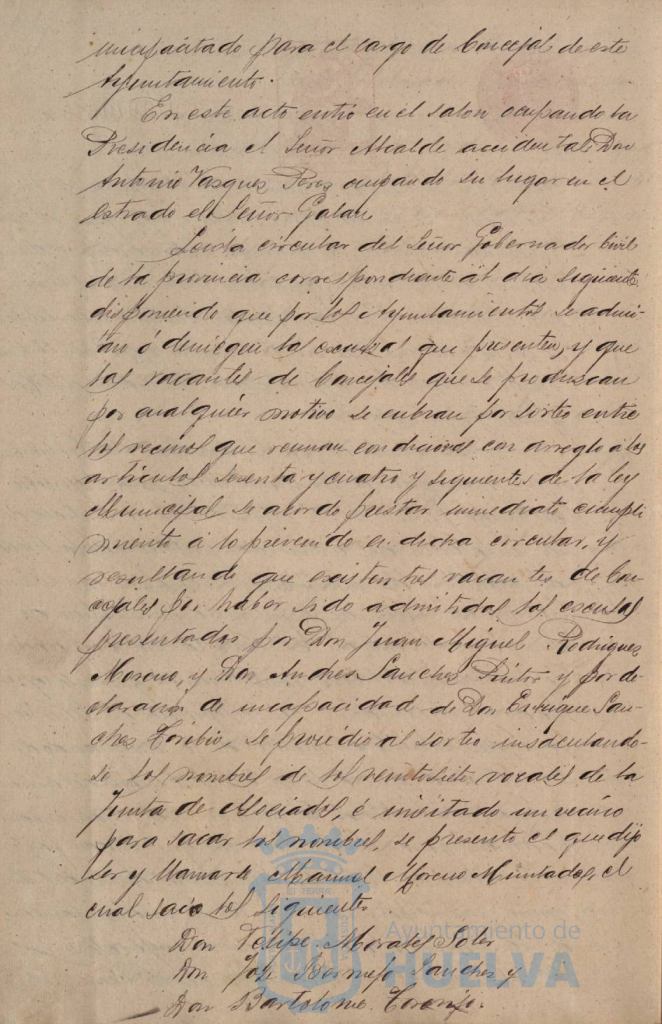 incapacitado para el cargo de Concejal de este
Ayuntamiento.
En este acto entró en el salon ocupando la
Presidencia el Señor Alcalde accidental Don
Antonio Vasques Peres ocupando su lugar en el
estrado el Señor Galan
Leida circular del Señor Gobernador Civil
de la provincia correspondiente al dia siguiente
disponiendo que por los Ayuntamientos se admi-
tan ó denieguen las escusas que presenten, y que
las vacantes de Concejales que se produscan
por cualquier motivo se cubran por sorteo entre
los vecinos que reunan condiciones con arreglo á los
articulos sesenta y cuatro y siguientes de la ley
Municipal se acordó prestar inmediato cumpli
miento á lo prevenido en dicha circular, y
resultando que existen tres vacantes de Con
cejales por haber sido admitidas las escusas
presentadas por Don Juan Miguel Rodrigues
Moreno, y Don Andres Sanches Pintor y por de-
claracion de incapacidad de Don Enrique San-
ches Toribio, se procedio al sorteo insaculando-
se los nombres de los veintisiete vocales de la
Junta de Asociados, é invitado un vecino
para sacar los nombres, se presentó el que dijo
ser y llamarse Manuel Moreno Muntados, el
cual sacó los siguientes
Don Felipe Morales Soler
Don Jose Bermejo Sanches y
Don Bartolome Toronjo.
Ayuntamiento de
HUELVA